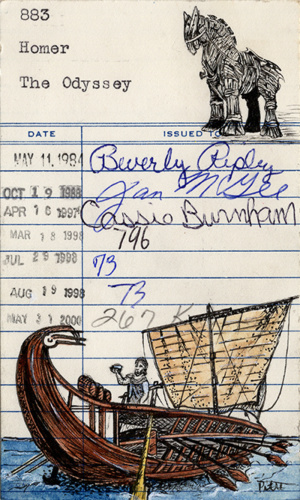 883
Homer
The Odyssey
DATE ISSUED TO
MAY 11.1984 Beverly Ripley
OCT 19 1988 Jan McGee
APR 16 1997 Cassie Burnham
MAR 18 1998 796
JUL 29 1998 73
AUG 19 1998 73
MAY 31 2000 267 K